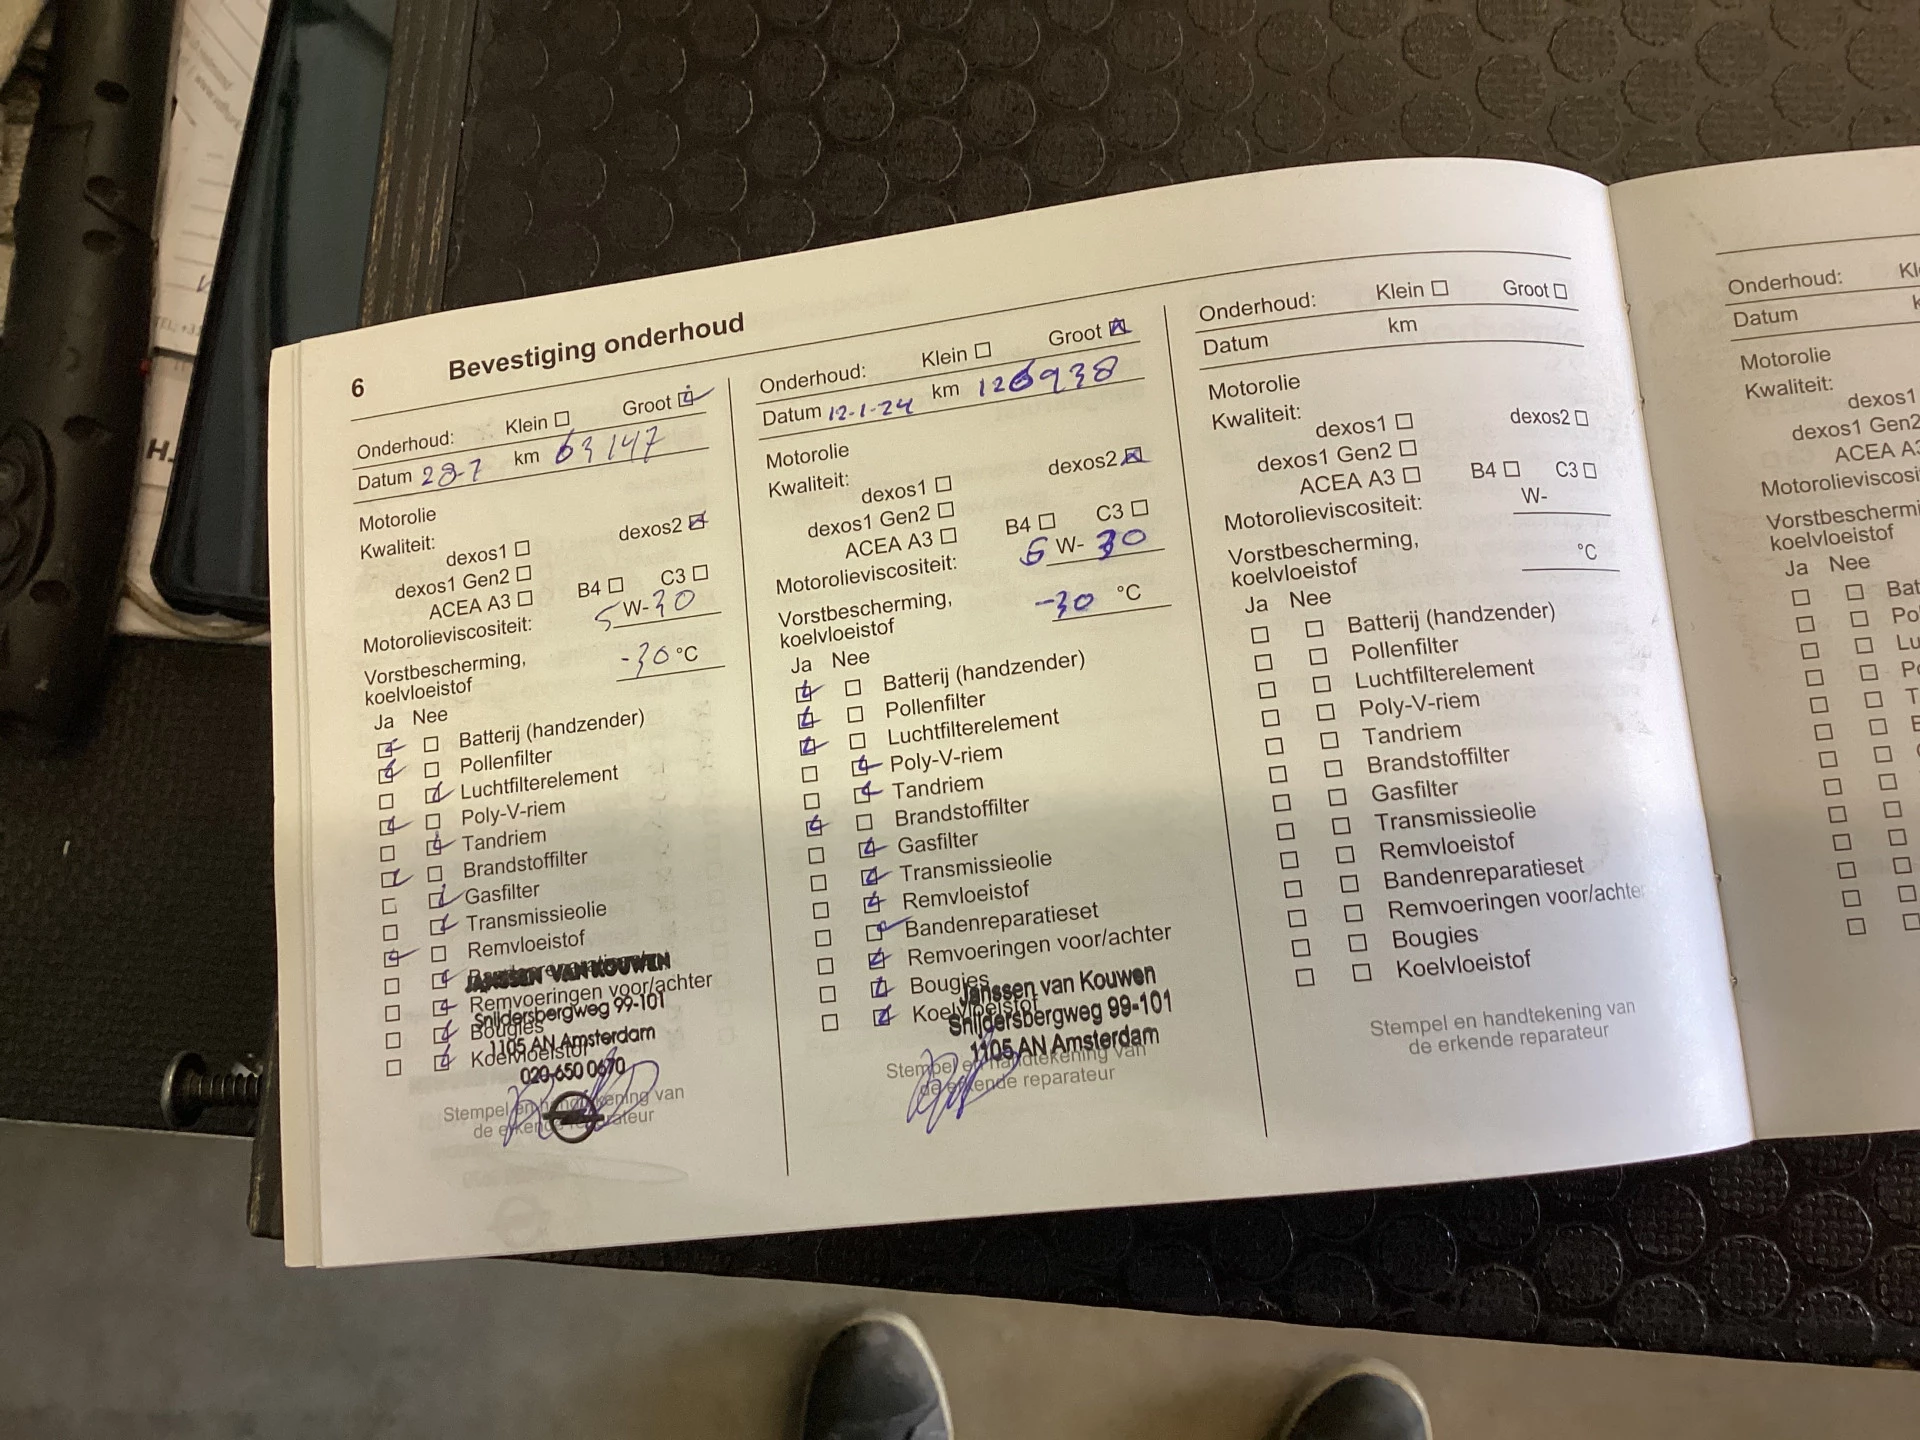 6
Bevestiging onderhoud
Onderhoud: Klein Groot
Datum 28-7 km 63147
Motorolie
Kwaliteit:
dexos1 dexos2
dexos1 Gen2
ACEA A3 B4 C3
Motorolieviscositeit: 5 W-30
Vorstbescherming,
koelvloeistof -30 °C
Ja Nee
Batterij (handzender)
Pollenfilter
Luchtfilterelement
Poly-V-riem
Tandriem
Brandstoffilter
Gasfilter
Transmissieolie
Remvloeistof
JANSSEN VAN KOUWEN
Remvoeringen voor/achter
Snijdersbergweg 99-101
Bougies
1105 AN Amsterdam
Koelvloeistof
020-650 0670
Stempel en handtekening van
de erkende reparateur
Onderhoud: Klein Groot
Datum 12-1-24 km 126938
Motorolie
Kwaliteit:
dexos1 dexos2
dexos1 Gen2
ACEA A3 B4 C3
Motorolieviscositeit: 5 W-30
Vorstbescherming,
koelvloeistof -30 °C
Ja Nee
Batterij (handzender)
Pollenfilter
Luchtfilterelement
Poly-V-riem
Tandriem
Brandstoffilter
Gasfilter
Transmissieolie
Remvloeistof
Bandenreparatieset
Remvoeringen voor/achter
Bougies
Janssen van Kouwen
Koelvloeistof
Snijdersbergweg 99-101
1105 AN Amsterdam
Stempel en handtekening van
de erkende reparateur
Onderhoud: Klein Groot
Datum km
Motorolie
Kwaliteit:
dexos1 dexos2
dexos1 Gen2
ACEA A3 B4 C3
Motorolieviscositeit: W-
Vorstbescherming,
koelvloeistof °C
Ja Nee
Batterij (handzender)
Pollenfilter
Luchtfilterelement
Poly-V-riem
Tandriem
Brandstoffilter
Gasfilter
Transmissieolie
Remvloeistof
Bandenreparatieset
Remvoeringen voor/achter
Bougies
Koelvloeistof
Stempel en handtekening van
de erkende reparateur
Onderhoud: Kl
Datum
Motorolie
Kwaliteit:
dexos1
dexos1 Gen2
ACEA A3
Motorolieviscosi
Vorstbeschermi
koelvloeistof
Ja Nee
Bat
Po
Lu
Po
T
H.